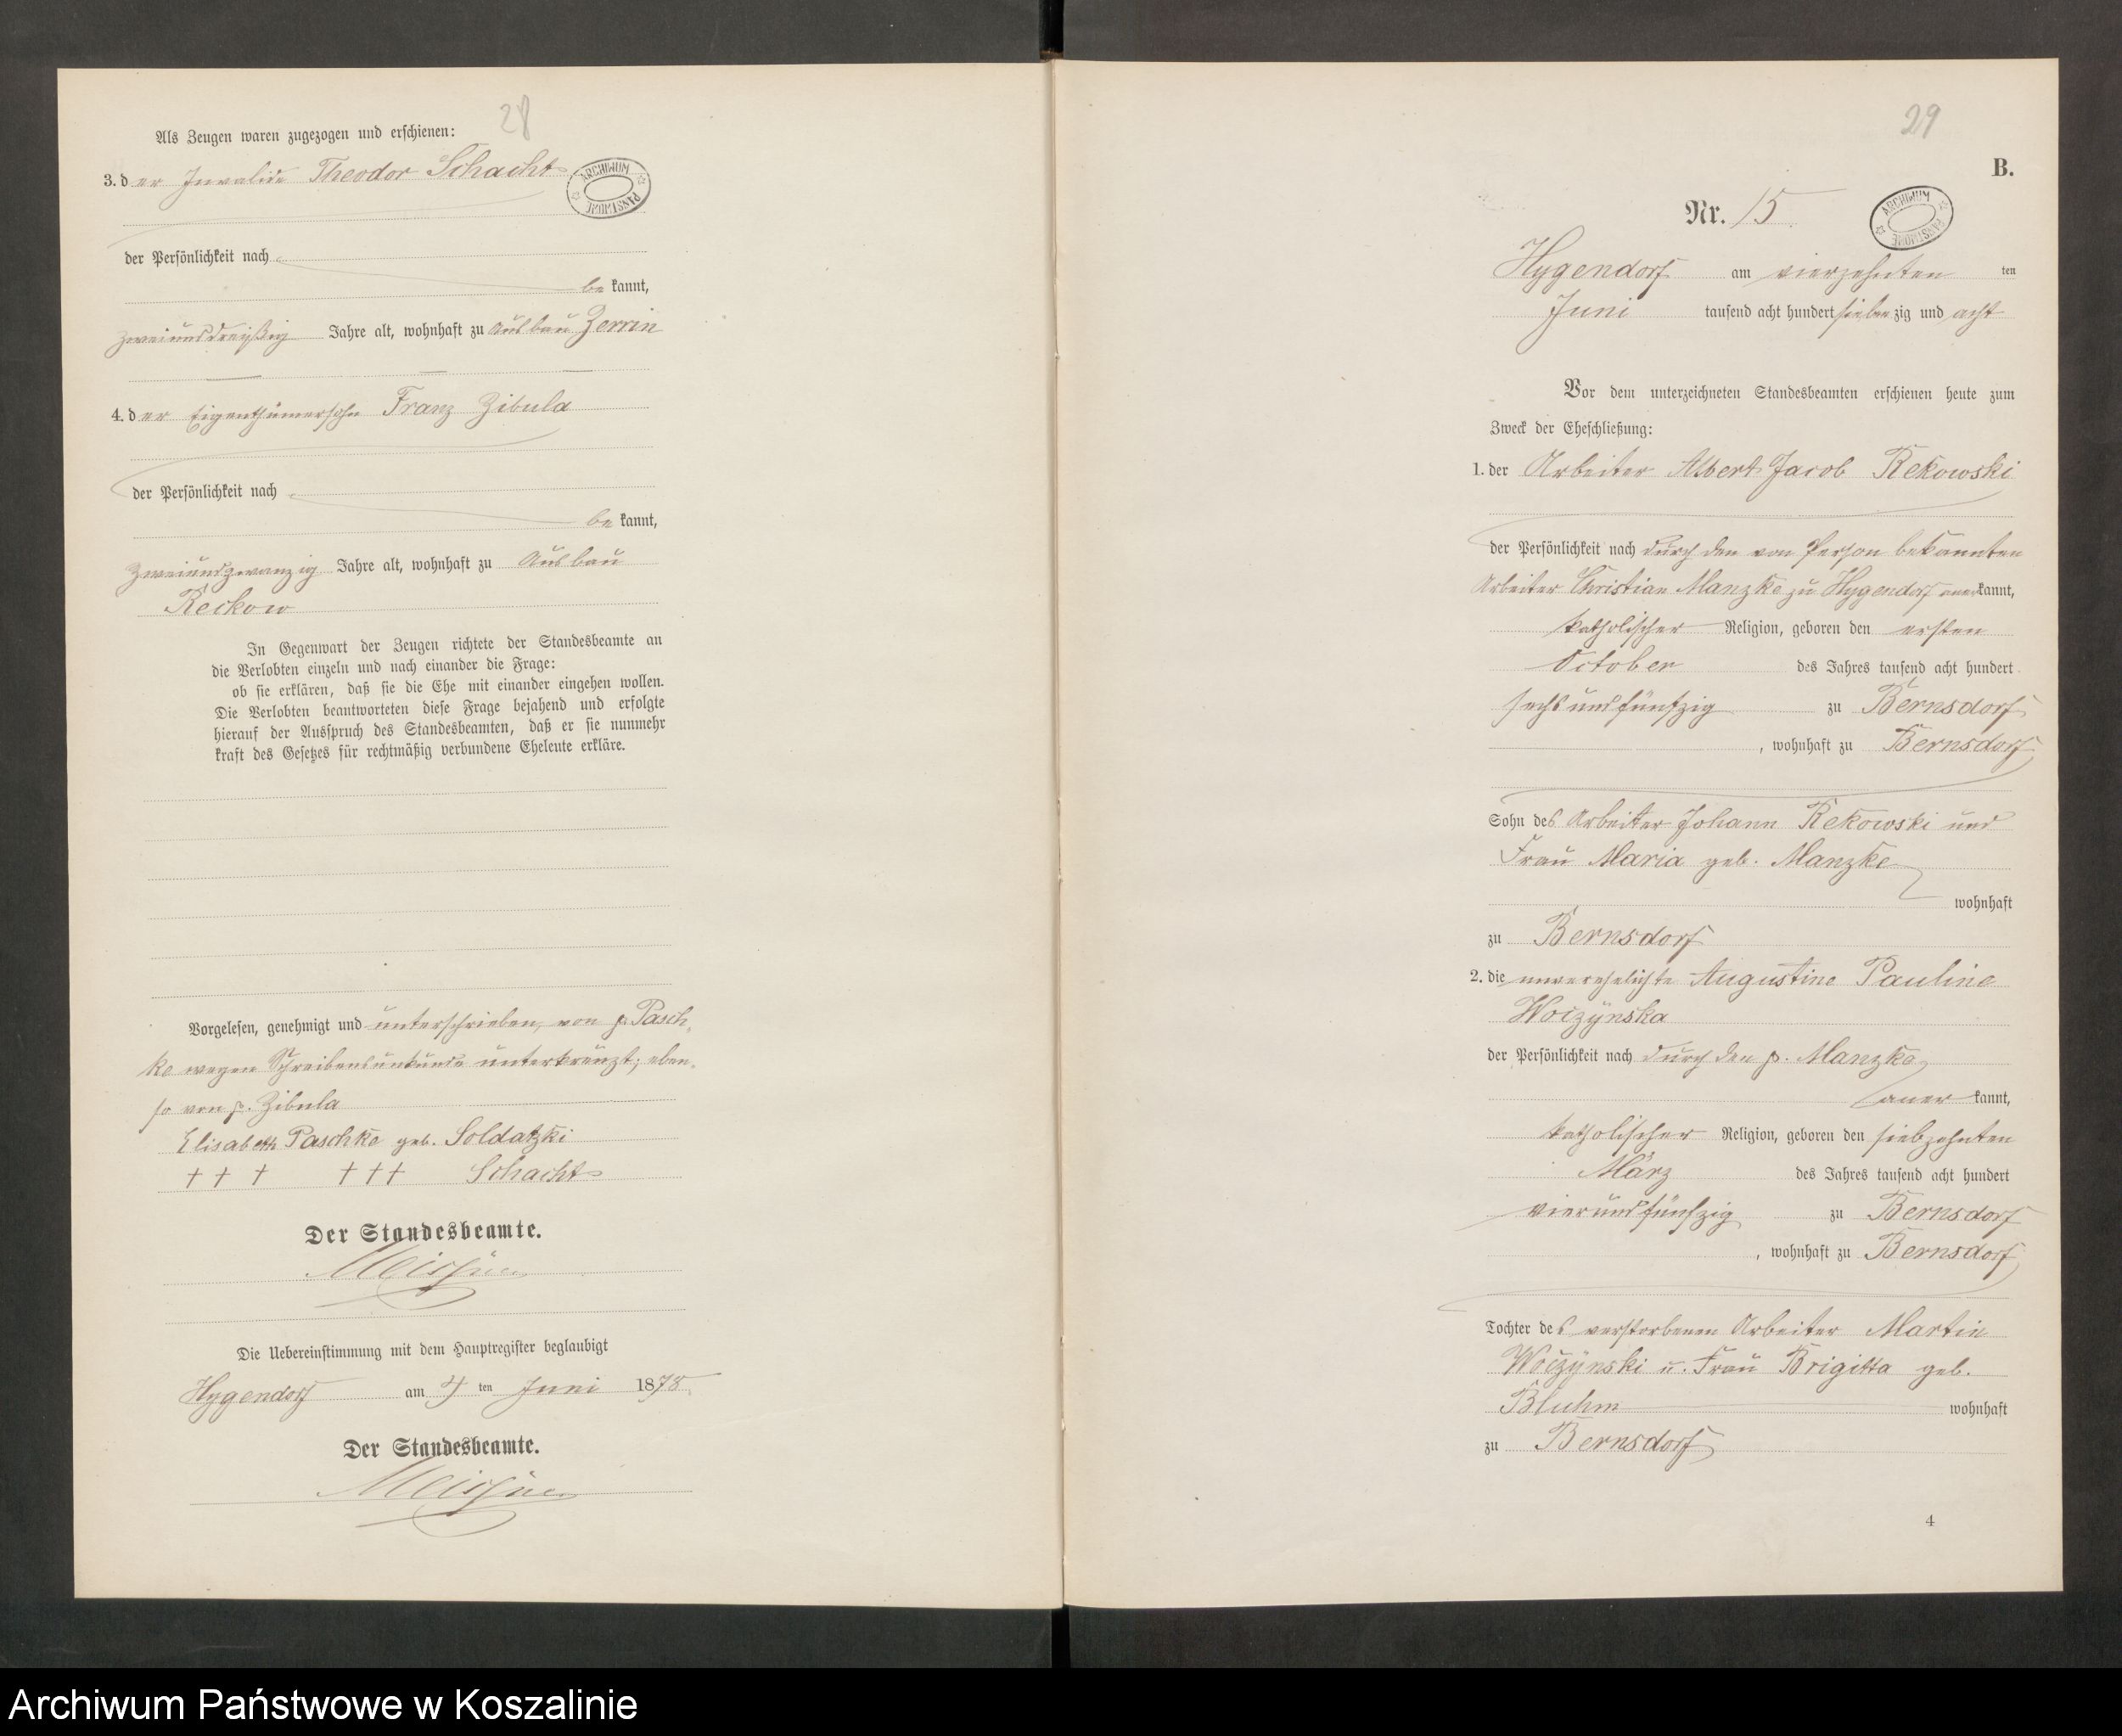 28
Als Zeugen waren zugezogen und erschienen:
3. der Invalide Theodor Schacht
ARCHIWUM PAŃSTWOWE
der Persönlichkeit nach
bekannt,
zweiunddreißig Jahre alt, wohnhaft zu Ausbau Zerrin
4. der Eigenthümersohn Franz Zibula
der Persönlichkeit nach
bekannt,
zweiundzwanzig Jahre alt, wohnhaft zu Ausbau
Reckow
In Gegenwart der Zeugen richtete der Standesbeamte an
die Verlobten einzeln und nach einander die Frage:
ob sie erklären, daß sie die Ehe mit einander eingehen wollen.
Die Verlobten beantworteten diese Frage bejahend und erfolgte
hierauf der Ausspruch des Standesbeamten, daß er sie nunmehr
kraft des Gesetzes für rechtmäßig verbundene Eheleute erkläre.
Vorgelesen, genehmigt und unterschrieben, von p. Pasch-
ke wegen Schreibensunkunde unterkreuzt; eben-
so von p. Zibula
Elisabeth Paschke geb. Soldatzki
+ + + + + + Schacht
Der Standesbeamte.
Die Uebereinstimmung mit dem Hauptregister beglaubigt
Hygendorf am 4 ten Juni 1878
Der Standesbeamte.
29
B.
Nr. 15
ARCHIWUM PAŃSTWOWE
Hygendorf am vierzehnten ten
Juni tausend acht hundert siebenzig und acht
Vor dem unterzeichneten Standesbeamten erschienen heute zum
Zweck der Eheschließung:
1. der Arbeiter Albert Jacob Rekowski
der Persönlichkeit nach durch den von Person bekannten
Arbeiter Christian Manzke zu Hygendorf anerkannt,
katholischer Religion, geboren den ersten
October des Jahres tausend acht hundert
sechsundfünfzig zu Bernsdorf
, wohnhaft zu Bernsdorf
Sohn des Arbeiter Johann Rekowski und
Frau Maria geb. Manzke
wohnhaft
zu Bernsdorf
2. die unverehelichte Augustine Pauline
Woizynska
der Persönlichkeit nach durch den p. Manzke
anerkannt,
katholischer Religion, geboren den siebzehnten
März des Jahres tausend acht hundert
vierundfünfzig zu Bernsdorf
, wohnhaft zu Bernsdorf
Tochter des verstorbenen Arbeiter Martin
Woizynski u. Frau Brigitta geb.
Bluhm wohnhaft
zu Bernsdorf
4
Archiwum Państwowe w Koszalinie